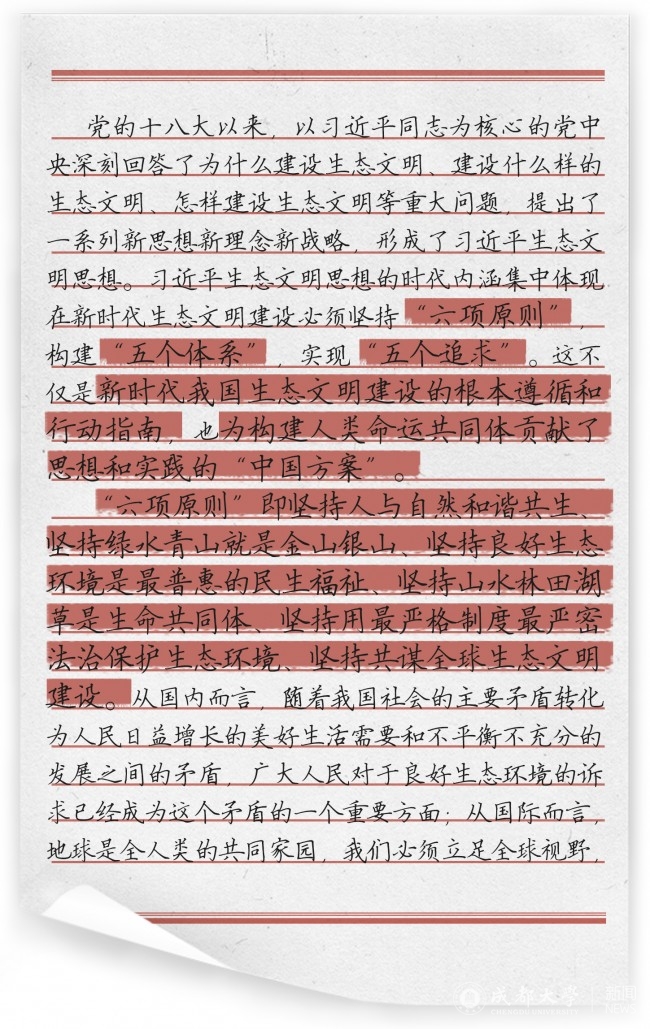 党的十八大以来，以习近平同志为核心的党中
央深刻回答了为什么建设生态文明、建设什么样的
生态文明、怎样建设生态文明等重大问题，提出了
一系列新思想新理念新战略，形成了习近平生态文
明思想。习近平生态文明思想的时代内涵集中体现
在新时代生态文明建设必须坚持“六项原则”，
构建“五个体系”，实现“五个追求”。这不
仅是新时代我国生态文明建设的根本遵循和
行动指南，也为构建人类命运共同体贡献了
思想和实践的“中国方案”。
“六项原则”即坚持人与自然和谐共生、
坚持绿水青山就是金山银山、坚持良好生态
环境是最普惠的民生福祉、坚持山水林田湖
草是生命共同体、坚持用最严格制度最严密
法治保护生态环境、坚持共谋全球生态文明
建设。从国内而言，随着我国社会的主要矛盾转化
为人民日益增长的美好生活需要和不平衡不充分的
发展之间的矛盾，广大人民对于良好生态环境的诉
求已经成为这个矛盾的一个重要方面；从国际而言，
地球是全人类的共同家园，我们必须立足全球视野，
成都大学 新闻
CHENGDU UNIVERSITY